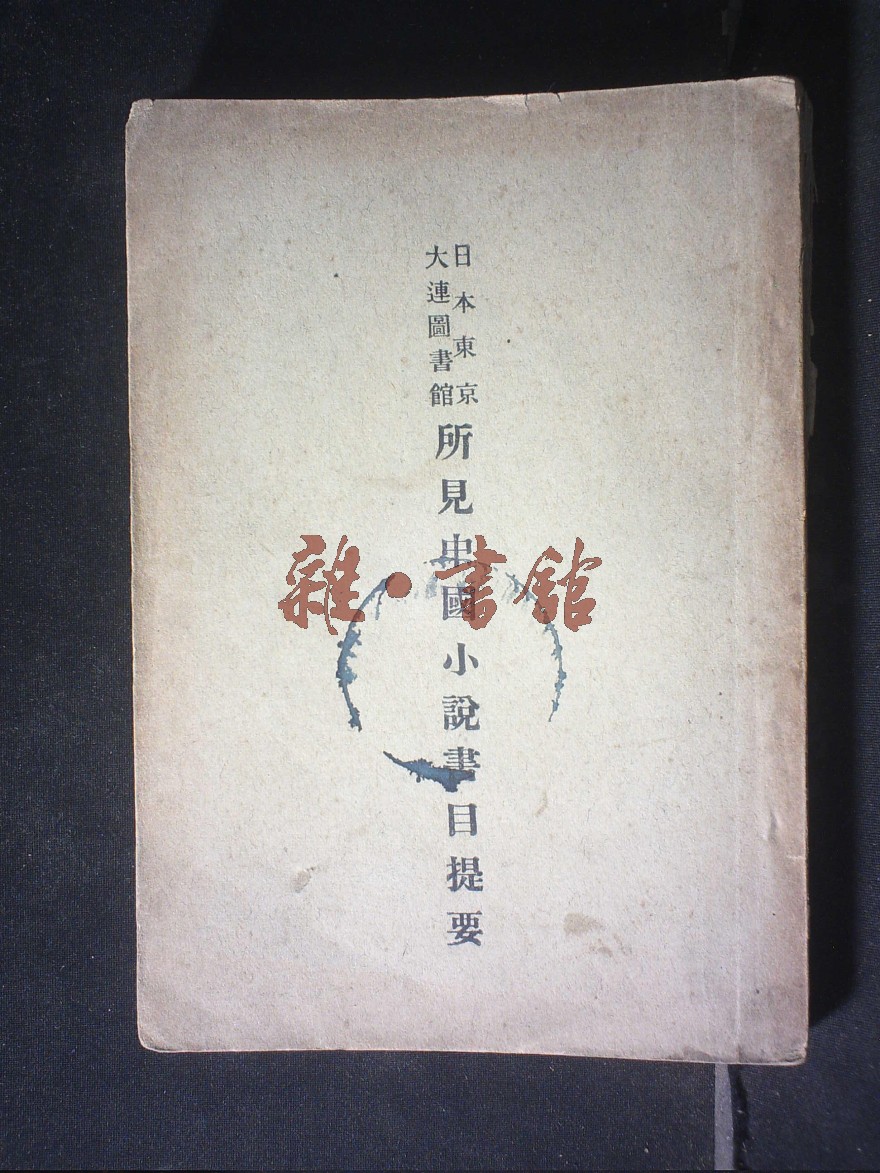 日本東京
大連圖書館
所見中國小說書目提要
雜·書館